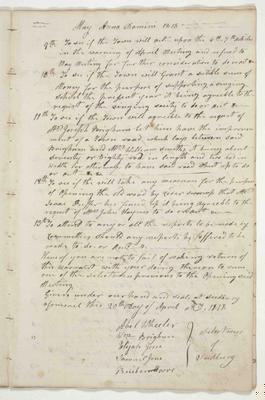 May Anno Domini 1818
9th To see if the Town will act upon the 4th, 7th articles
in the warning of April Meeting and refered to
May Meeting for further consideration to do or act
10th To see if the Town will Grant a sutable sum of
Money for the purpose of supporting a singing
School the present year it being agreeable to the
request of the singing society to do or act
11th To see if the Town will agreeable to the request of
Mr Joseph Brigham let have the improve
ment of a Town road which lays between said
Brigham and Mr William it being about
Seventy or Eighty rod in length and two rod in
width, or otherwise to have said road Shut up to do
or act
12th To see if the will take any measures for the purpose
of Opening the old road by swamp that Mr
Isaac has fenced up it being agreeable to the
request of Mr John Haynes to do or act
13th To attend to any or all the reports to be made by
Committees Should any reports be offered to be
made to do or act
Hereof you are not to fail of making return of
this warrant with your doings thereon to some
one of the selectmen previous to the Opening said
Meeting.
Given under our hand and seals at Sudbury
aforesaid this 20th Day of April AD. 1818
Abel Wheeler
Wm Brigham
Elijah
Samuel
Reuben Moore
Selectmen
of
Sudbury